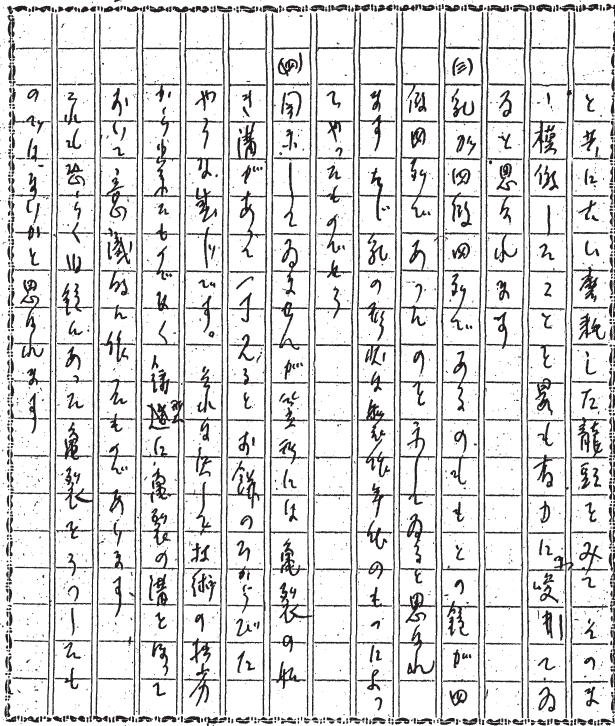 と共に古い磨耗した龍頭をみてそのま
ゝ模倣したことを最も有力に  てゐ
ると思はれます
㈢乳が四段四列であるのももとの鐘が四
段四列であつたのを示してゐると思はれ
ます たゞ乳の形状は  年代のものによつ
てやつたものでせう
㈣図示してゐませんが笠形には亀裂の如
き溝があつて一寸見るとお餅のひからびた
やうな感じです。それは決して技術の拙劣
から出来たものでなく鋳造に亀裂の溝をほつて
おいて意識的に作つたものであります、
これも恐らく旧鐘にあつた亀裂をうつしたも
のではないかと思はれます